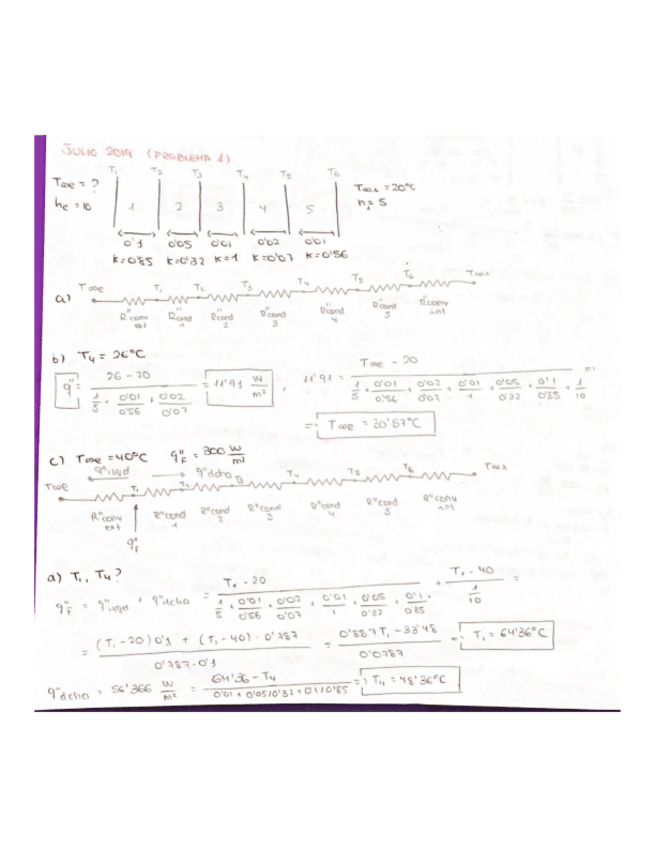 JULIO 2019 (PROBLEMA 1)
T1 T2 T3 T4 T5 T6
T∞e = ? T∞i = 20°C
he = 10 1 2 3 4 5 hi = 5
0'1 0'05 0'01 0'02 0'01
K=0'85 K=0'32 K=1 K=0'07 K=0'56
a) T∞e T1 T2 T3 T4 T5 T6 T∞i
R"conv ext R"cond 1 R"cond 2 R"cond 3 R"cond 4 R"cond 5 R"conv int
b) T4 = 26°C
q" = (26 - 20) / (1/5 + 0'01/0'56 + 0'02/0'07) = 11'91 W/m² , 11'91 = (T∞e - 20) / (1/5 + 0'01/0'56 + 0'02/0'07 + 0'01/1 + 0'05/0'32 + 0'1/0'85 + 1/10) =>
=> T∞e = 30'57°C
c) T∞e = 40°C q"F = 300 W/m²
q"izqd q"dcha
T∞e T1 T2 T4 T5 T6 T∞i
R"conv ext R"cond 1 R"cond 2 R"cond 3 R"cond 4 R"cond 5 R"conv int
q"F
a) T1, T4?
q"F = q"izqd + q"dcha = (T1 - 20) / (1/5 + 0'01/0'56 + 0'02/0'07 + 0'01/1 + 0'05/0'32 + 0'1/0'85) + (T1 - 40) / (1/10) =
= ((T1 - 20) 0'1 + (T1 - 40) · 0'787) / (0'787 · 0'1) = (0'887 T1 - 33'48) / 0'0787 => T1 = 64'36°C
q"dcha = 56'366 W/m² = (64'36 - T4) / (0'01 + 0'05/0'32 + 0'1/0'85) => T4 = 48'36°C